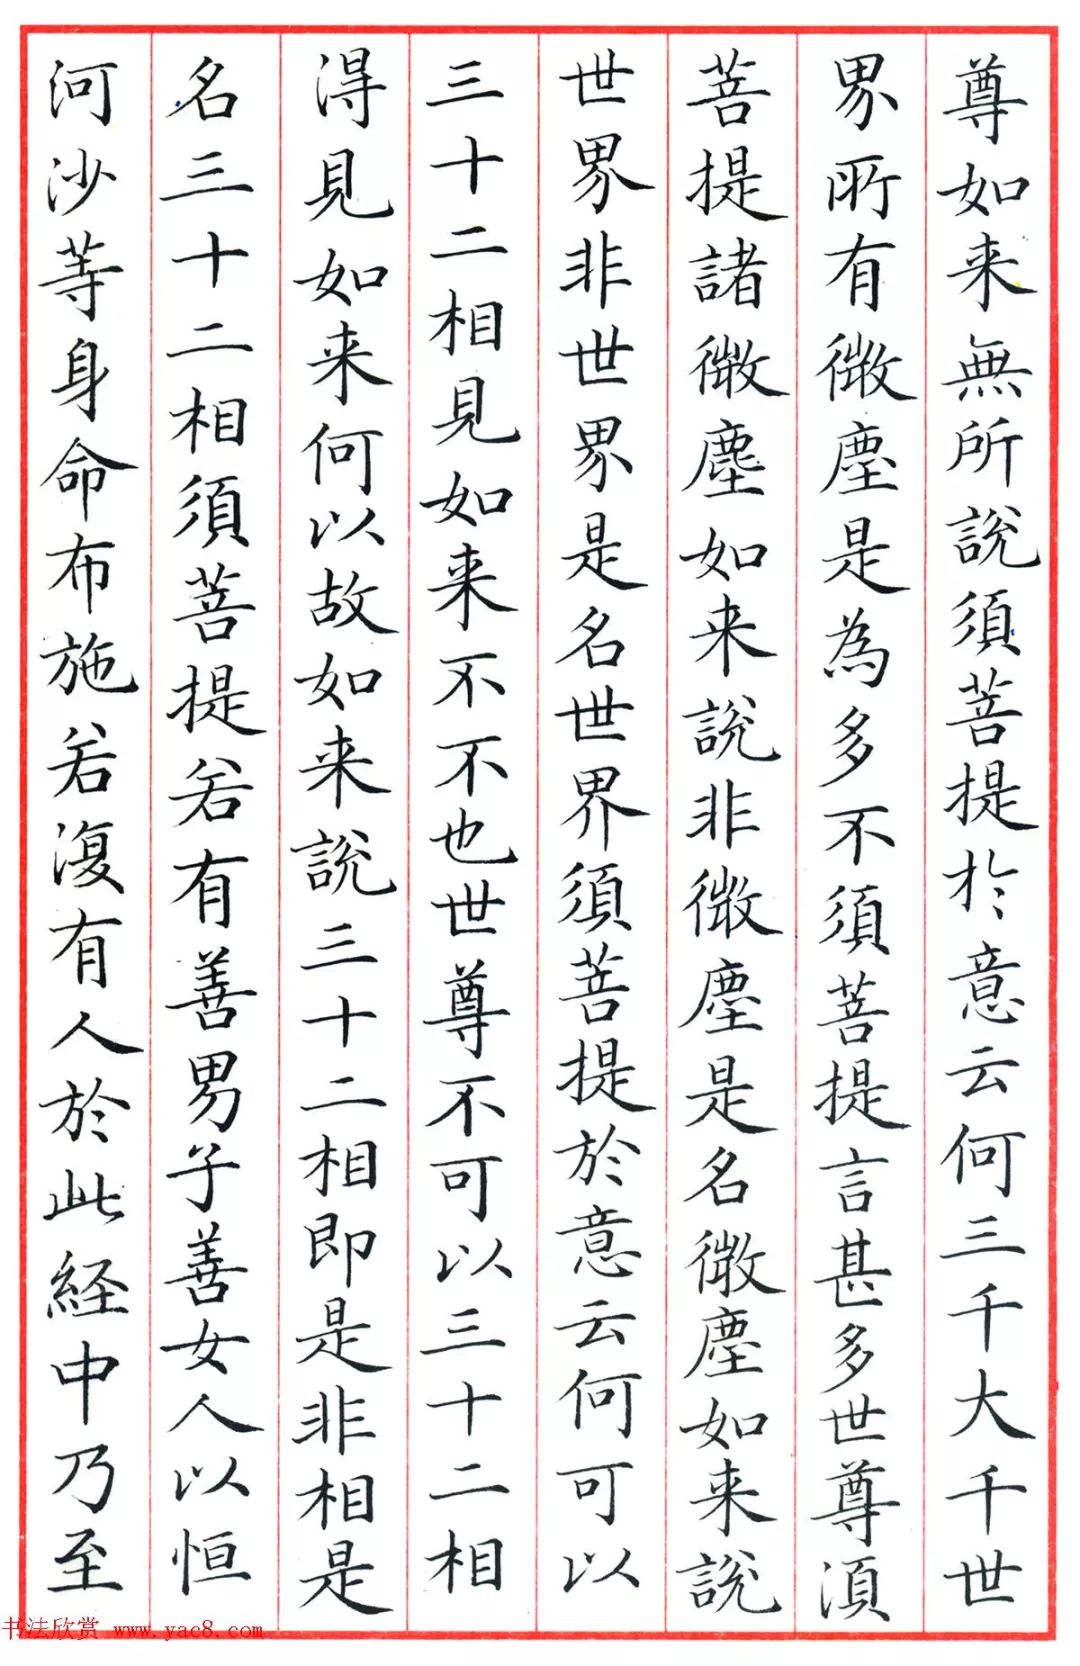 尊如来無所說須菩提於意云何三千大千世
界所有微塵是為多不須菩提言甚多世尊須
菩提諸微塵如来說非微塵是名微塵如来說
世界非世界是名世界須菩提於意云何可以
三十二相見如来不不也世尊不可以三十二相
得見如来何以故如来說三十二相即是非相是
名三十二相須菩提若有善男子善女人以恒
河沙等身命布施若復有人於此経中乃至
书法欣赏 www.yac8.com